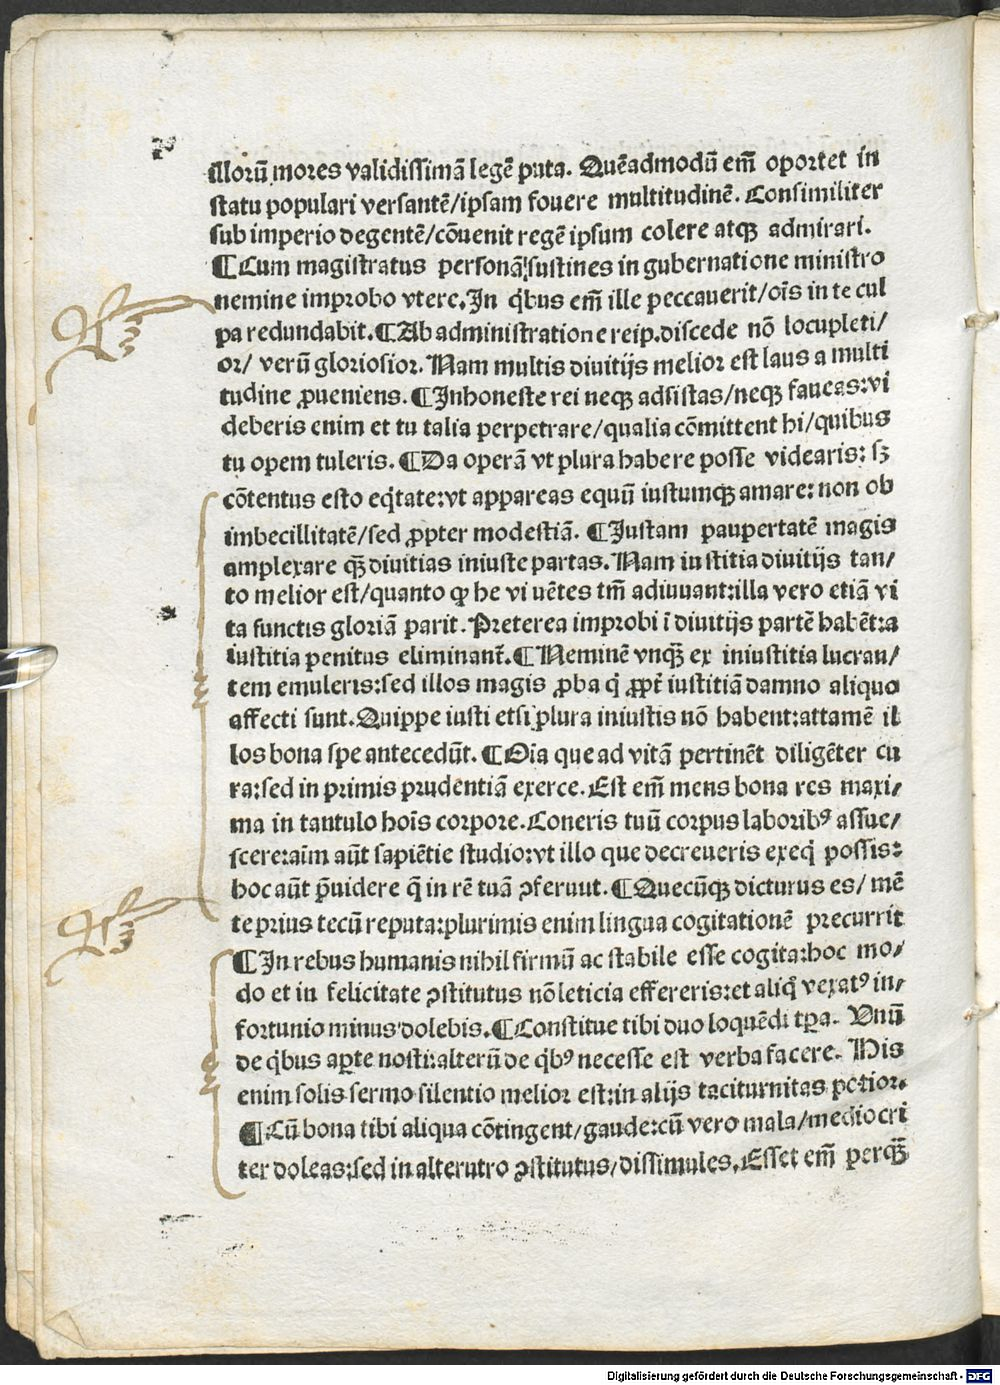 illorū mores validissimā legē puta. Quēadmodū em̄ oportet in
statu populari versantē/ipsam fouere multitudinē. Consimiliter
sub imperio degentē/cōuenit regē ipsum colere atqꝫ admirari.
¶Cum magistratus personā sustines in gubernatione ministro
nemine improbo vtere. In qͥbus em̄ ille peccauerit/oīs in te cul
pa redundabit. ¶Ab administratione reip. discede nō locupleti/
or/ verū gloriosior. Nam multis diuitijs melior est laus a multi
tudine ꝓueniens. ¶Inhoneste rei neqꝫ adsistas/neqꝫ faueas: vi
deberis enim et tu talia perpetrare/qualia cōmittent hi/quibus
tu opem tuleris. ¶Da operā vt plura habere posse videaris: sꝫ
cōtentus esto eqͥtate: vt appareas equū iustumqꝫ amare: non ob
imbecillitatē/sed ꝓpter modestiā. ¶Iustam paupertatē magis
amplexare qꝫ̄ diuitias iniuste partas. Nam iustitia diuitijs tan/
to melior est/quanto qꝫ he viuētes tm̄ adiuuant: illa vero etiā vi
ta functis gloriā parit. Preterea improbi ī diuitijs partē habēt: a
iustitia penitus eliminant᷑. ¶Neminē vnqꝫ̄ ex iniustitia lucran/
tem emuleris: sed illos magis ꝓba qͥ ꝓpt̄ iustitiā damno aliquo
affecti sunt. Quippe iusti etsi plura iniustis nō habent: attamē il
los bona spe antecedūt. ¶Oīa que ad vitā pertinēt diligēter cu
ra: sed in primis prudentiā exerce. Est em̄ mens bona res maxi/
ma in tantulo hoīs corpore. Coneris tuū corpus laboribꝰ assue/
scere: aīm aūt sapiētie studio: vt illo que decreueris exeqͥ possis:
hoc aūt p̄uidere q̄ in rē tuā ꝯferunt. ¶Quecūqꝫ dicturus es/ mē
te prius tecū reputa: plurimis enim lingua cogitationē precurrit
¶In rebus humanis nihil firmū ac stabile esse cogita: hoc mo/
do et in felicitate ꝯstitutus nō leticia effereris: et aliqͦ vexatꝰ in/
fortunio minus dolebis. ¶Constitue tibi duo loquēdi tꝑa. Vnū
de qͥbus aꝑte nosti: alterū de qͥbꝰ necesse est verba facere. His
enim solis sermo silentio melior est: in alijs taciturnitas potior.
¶Cū bona tibi aliqua cōtingent/gaude: cū vero mala/mediocri
ter doleas: sed in alterutro ꝯstitutus/dissimules. Esset em̄ perqꝫ̄
Digitalisierung gefördert durch die Deutsche Forschungsgemeinschaft - DFG